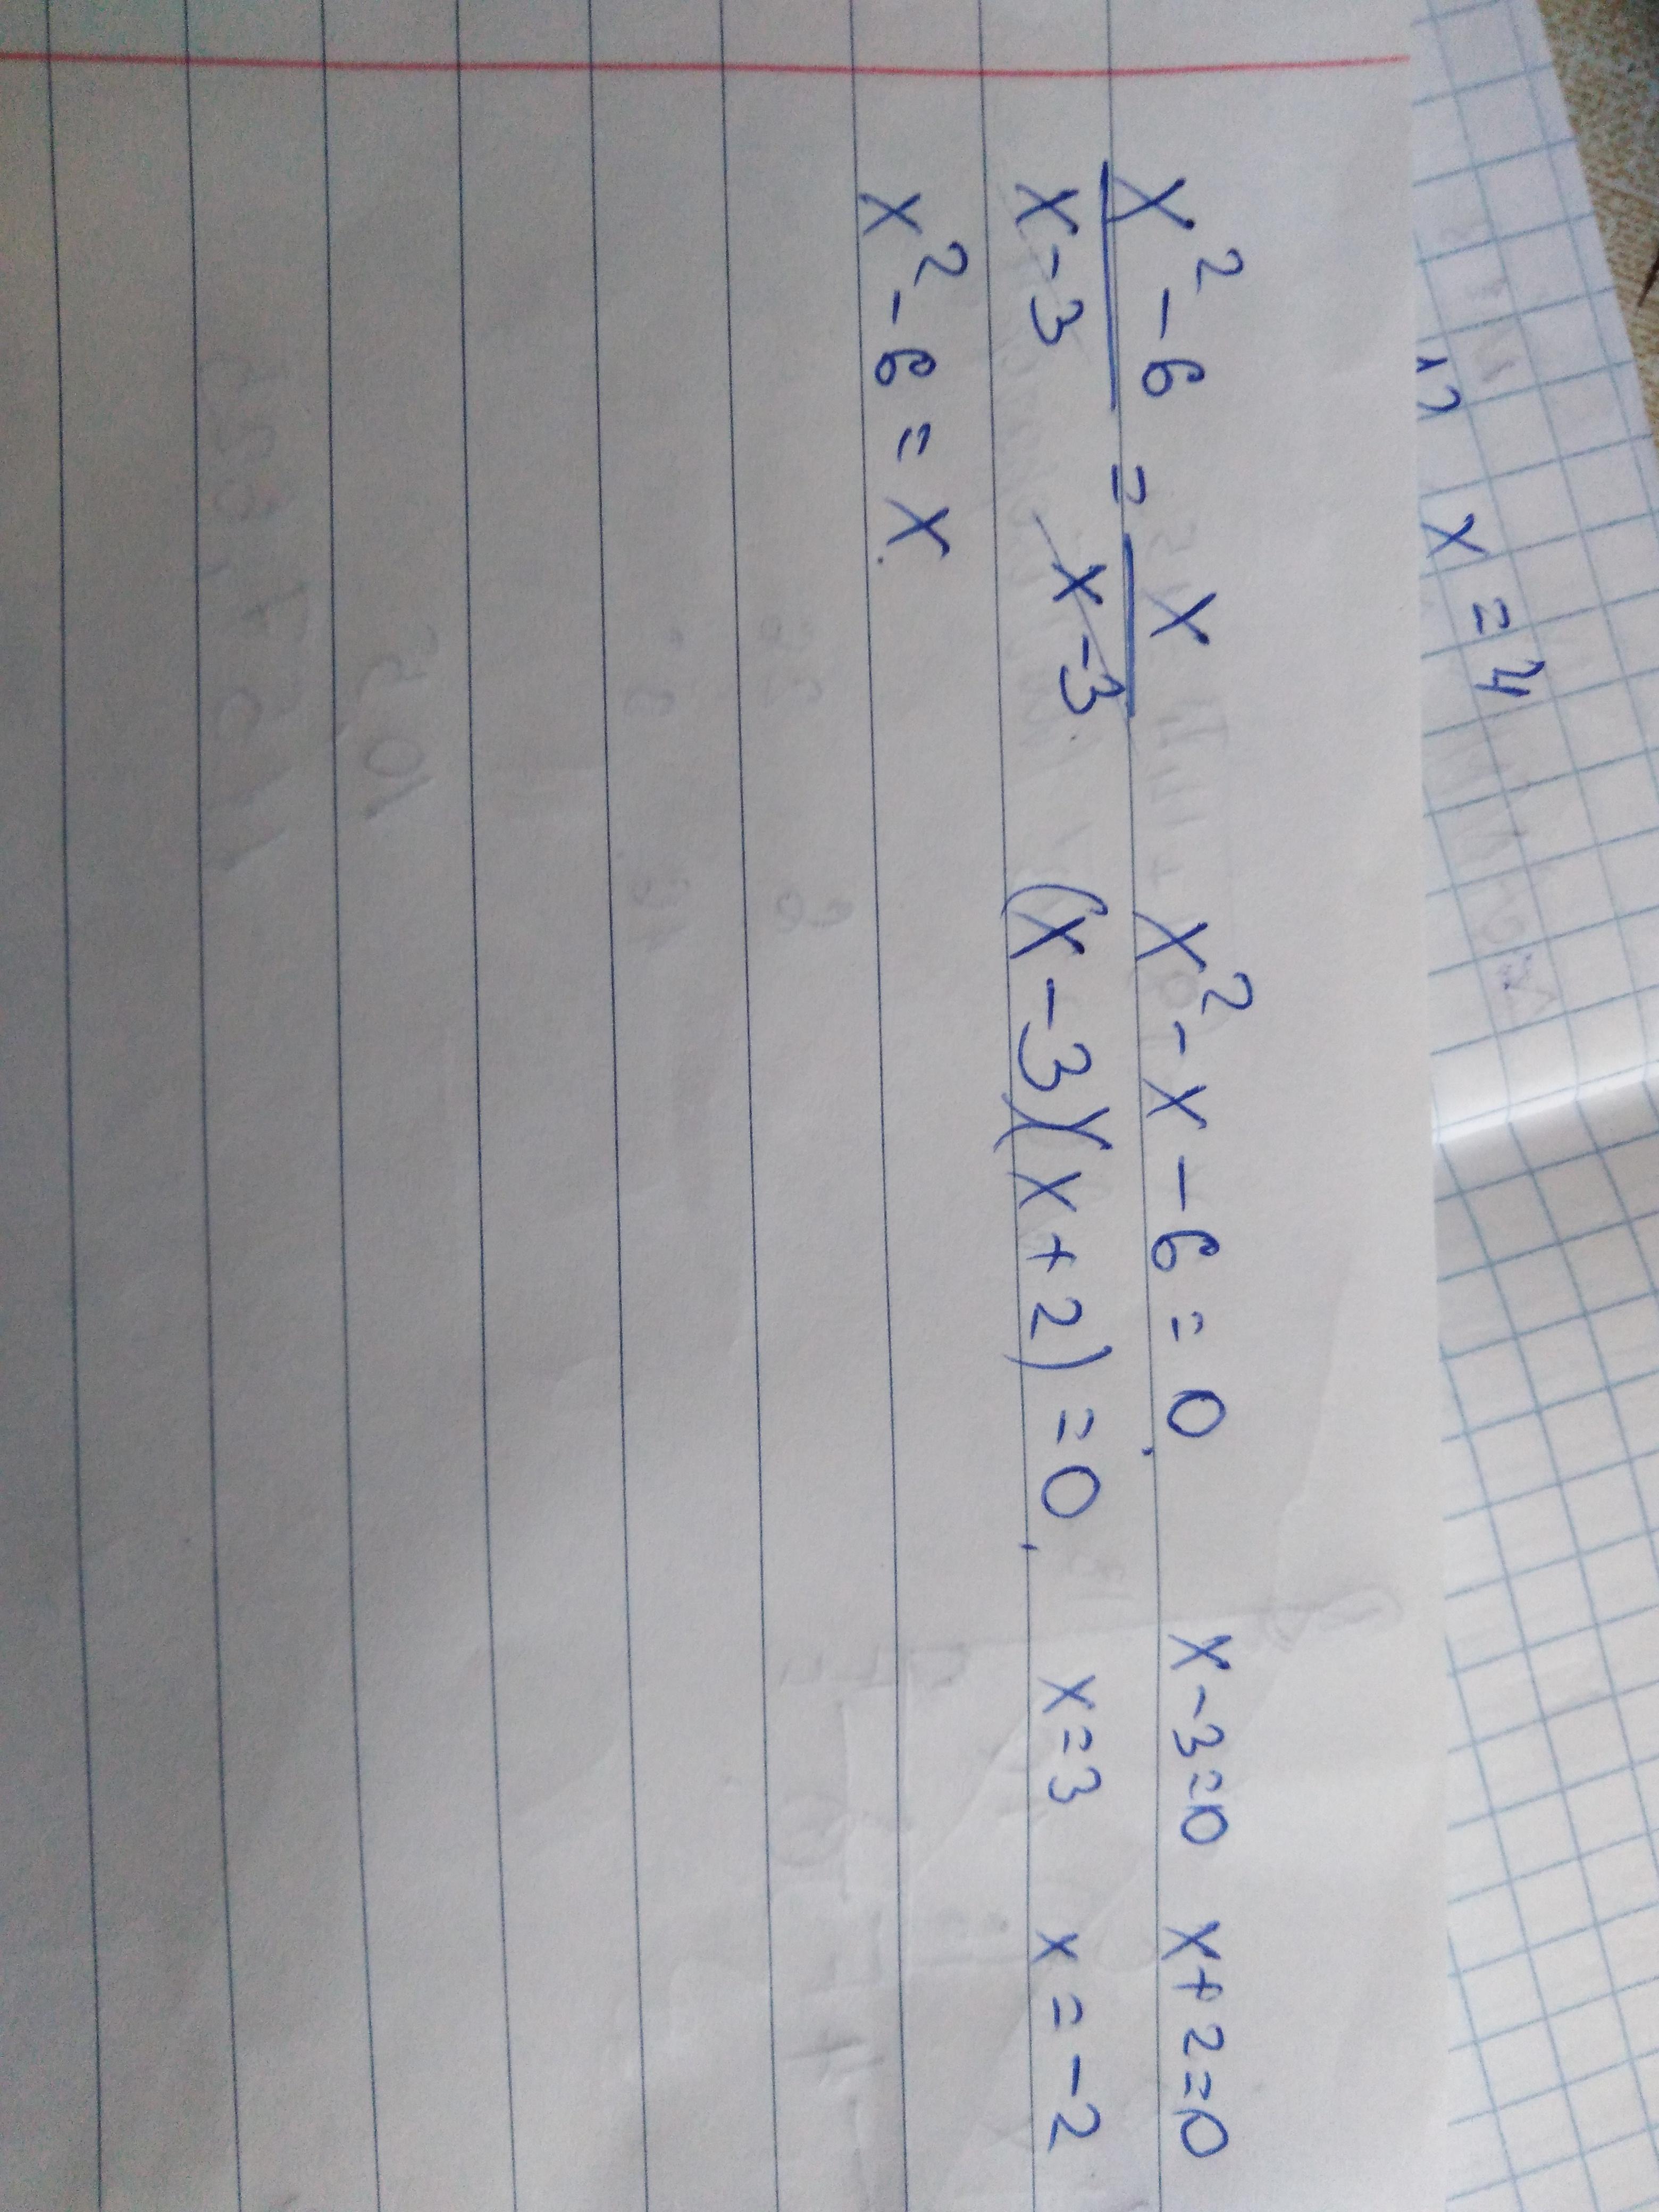 x = 4
x² - 6 / x - 3 = x / x - 3
x² - 6 = x
x² - x - 6 = 0
(x - 3)(x + 2) = 0
x - 3 = 0 x + 2 = 0
x = 3 x = -2